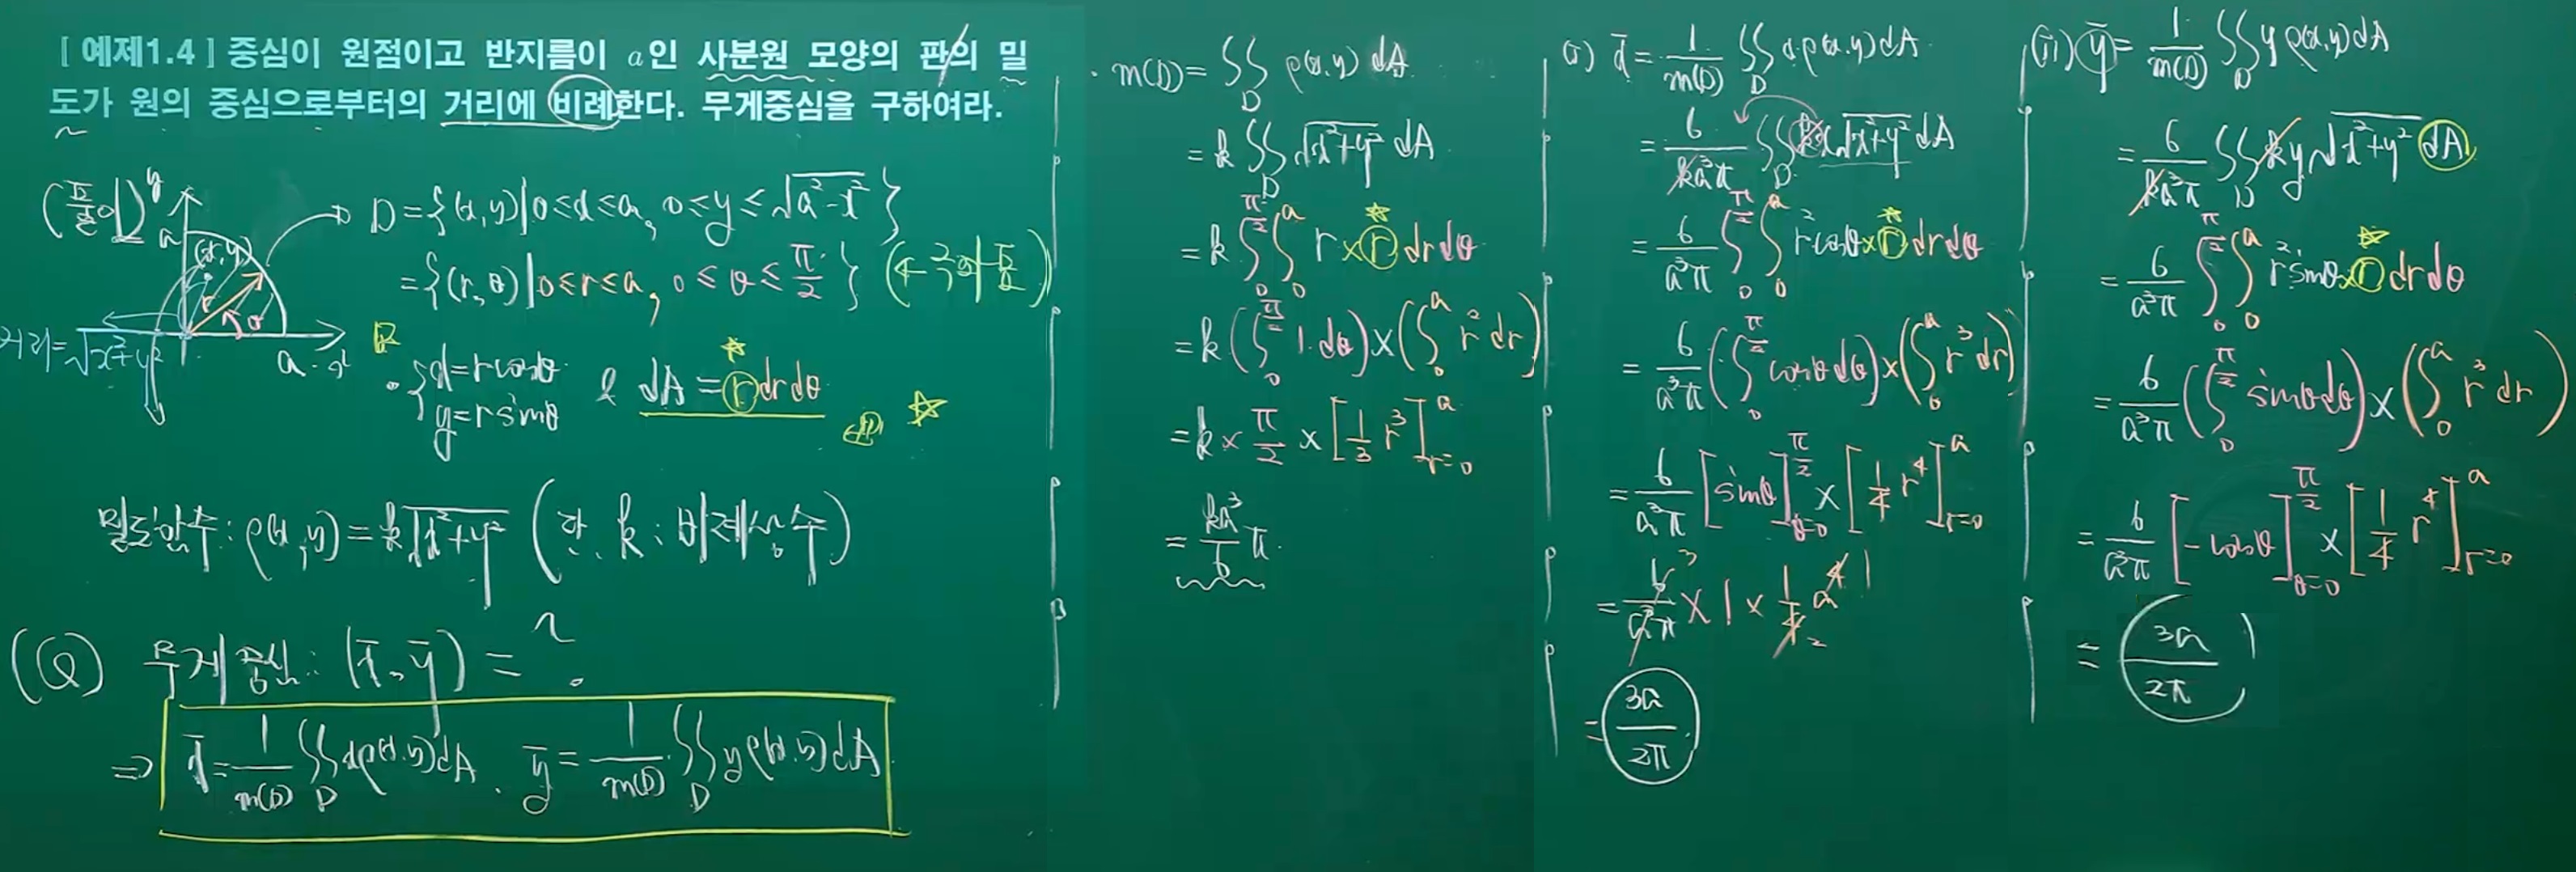 [ 예제1.4 ] 중심이 원점이고 반지름이 a인 사분원 모양의 판의 밀
도가 원의 중심으로부터의 거리에 비례한다. 무게중심을 구하여라.
(풀이)
y
a
(x,y)
r
θ
a
x
거리=√(x²+y²)
D={(x,y)|0≤x≤a, 0≤y≤√(a²-x²)}
={(r,θ)|0≤r≤a, 0≤θ≤π/2}
{x=rcosθ
y=rsinθ & dA=rdrdθ
밀도함수: ρ(x,y)=k√(x²+y²) (단, k: 비례상수)
(Q) 무게중심: (x̄,ȳ)=?
⇒ x̄=1/m(D) ∬_D xρ(x,y)dA, ȳ=1/m(D) ∬_D yρ(x,y)dA
· m(D)=∬_D ρ(x,y) dA
=k∬_D √(x²+y²) dA
=k∫_0^{π/2}∫_0^a r×r drdθ
=k(∫_0^{π/2} 1 dθ)×(∫_0^a r² dr)
=k×π/2×[1/3 r³]_{r=0}^a
=ka³/6 π
(i) x̄=1/m(D) ∬_D xρ(x,y)dA
=6/(ka³π) ∬_D kx√(x²+y²) dA
=6/(a³π) ∫_0^{π/2}∫_0^a r²cosθ×r drdθ
=6/(a³π) (∫_0^{π/2} cosθdθ)×(∫_0^a r³dr)
=6/(a³π) [sinθ]_{θ=0}^{π/2}×[1/4 r⁴]_{r=0}^a
=6/(a³π)×1×1/4 a⁴
=3a/2π
(ii) ȳ=1/m(D) ∬_D yρ(x,y)dA
=6/(ka³π) ∬_D ky√(x²+y²) dA
=6/(a³π) ∫_0^{π/2}∫_0^a r²sinθ×r drdθ
=6/(a³π) (∫_0^{π/2} sinθdθ)×(∫_0^a r³ dr)
=6/(a³π) [-cosθ]_{θ=0}^{π/2}×[1/4 r⁴]_{r=0}^a
=3a/2π